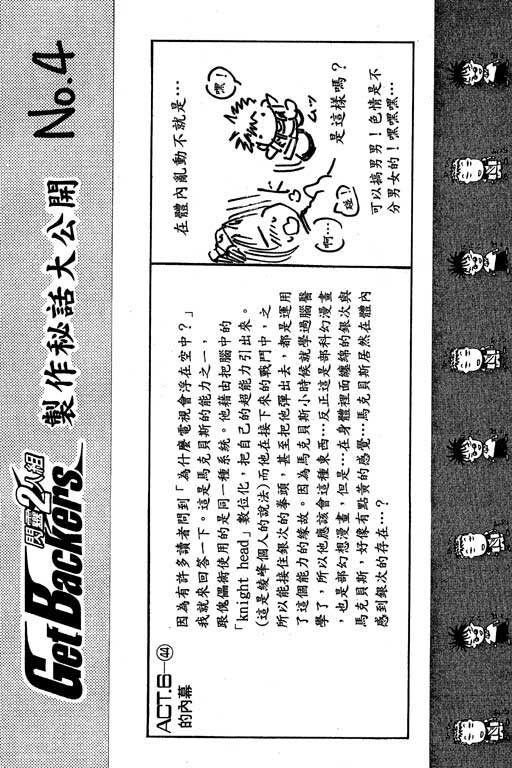 閃靈2人組
GetBackers
製作秘話大公開 No.4
ACT.6-㊹
的內幕
因為有許多讀者問到「為什麼電視會浮在空中？」
我就來回答一下。這是馬克貝斯的能力之一，
跟傀儡術使用的是同一種系統。他藉由把腦中的
「knight head」數位化，把自己的超能力引出來。
(這是綾峰個人的說法)而他在接下來的戰鬥中，之
所以能接住銀次的拳頭，甚至把他彈出去，都是運用
了這個能力的緣故。因為馬克貝斯小時候就學過腦醫
學了，所以他應該會這種東西…反正這是部科幻漫畫
，也是部幻想漫畫，但是…在身體裡面纏綿的銀次與
馬克貝斯，好像有點黃的感覺…馬克貝斯居然在體內
感到銀次的存在…？
在體內亂動不就是…
嘿！
ムッ
啊…
碰！
是這樣嗎？
可以搞男男！色情是不
分男女的！嘿嘿嘿…